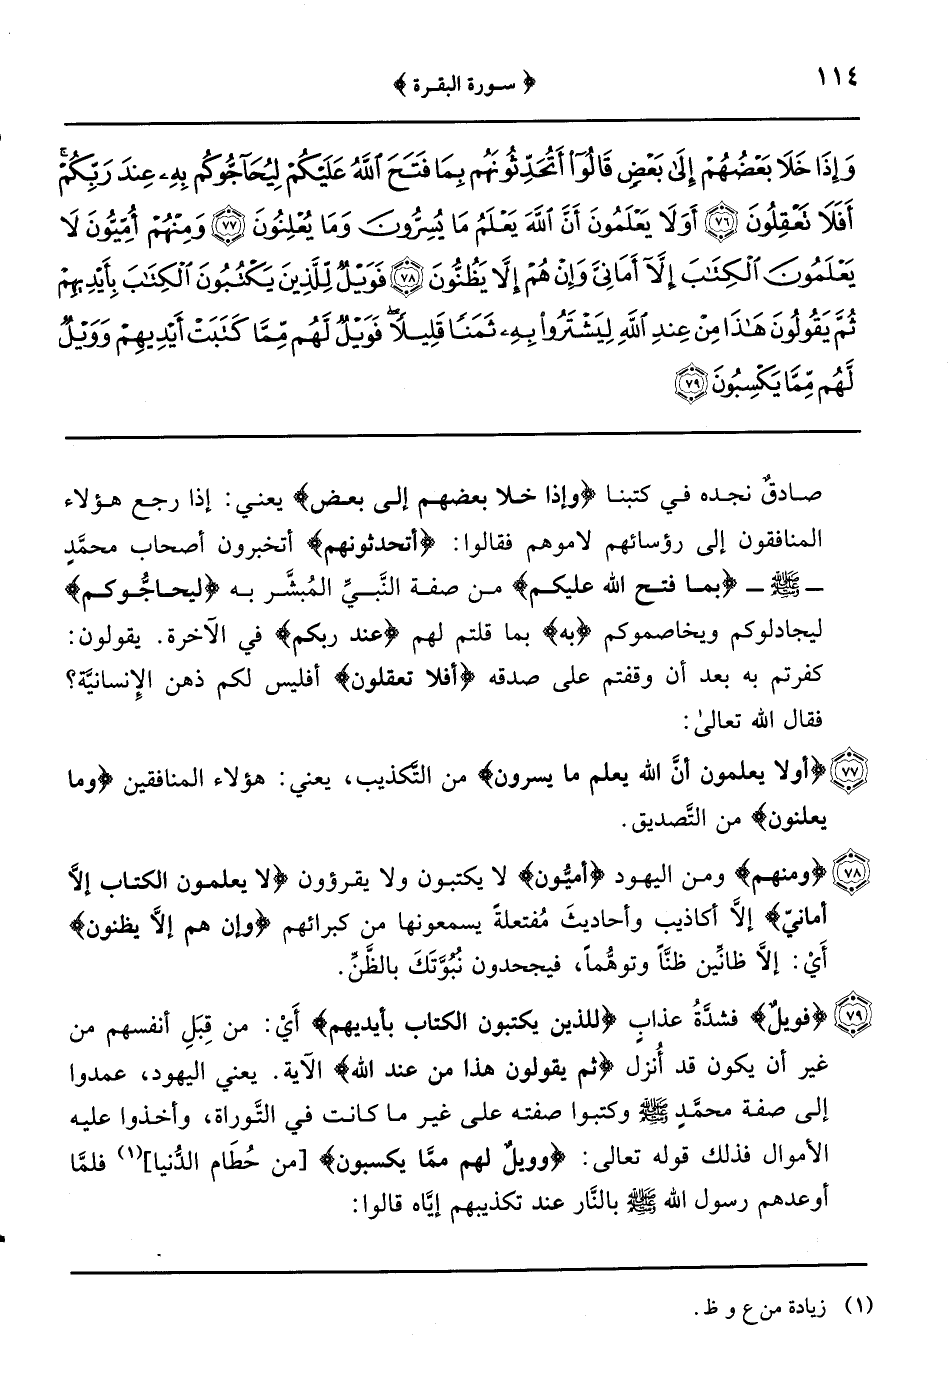 ١١٤
﴿ سورة البقرة ﴾
وَإِذَا خَلَا بَعْضُهُمْ إِلَىٰ بَعْضٍ قَالُوٓا۟ أَتُحَدِّثُونَهُم بِمَا فَتَحَ ٱللَّهُ عَلَيْكُمْ لِيُحَآجُّوكُم بِهِۦ عِندَ رَبِّكُمْ ۚ
أَفَلَا تَعْقِلُونَ ٧٦ أَوَلَا يَعْلَمُونَ أَنَّ ٱللَّهَ يَعْلَمُ مَا يُسِرُّونَ وَمَا يُعْلِنُونَ ٧٧ وَمِنْهُمْ أُمِّيُّونَ لَا
يَعْلَمُونَ ٱلْكِتَٰبَ إِلَّآ أَمَانِىَّ وَإِنْ هُمْ إِلَّا يَظُنُّونَ ٧٨ فَوَيْلٌ لِّلَّذِينَ يَكْتُبُونَ ٱلْكِتَٰبَ بِأَيْدِيهِمْ
ثُمَّ يَقُولُونَ هَٰذَا مِنْ عِندِ ٱللَّهِ لِيَشْتَرُوا۟ بِهِۦ ثَمَنًا قَلِيلًا ۖ فَوَيْلٌ لَّهُم مِّمَّا كَتَبَتْ أَيْدِيهِمْ وَوَيْلٌ
لَّهُم مِّمَّا يَكْسِبُونَ ٧٩
صادقٌ نجده في كتبنا ﴿وإذا خلا بعضهم إلى بعض﴾ يعني: إذا رجع هؤلاء
المنافقون إلى رؤسائهم لاموهم فقالوا: ﴿أتحدثونهم﴾ أتخبرون أصحاب محمَّدٍ
ـ ﷺ ـ ﴿بما فتح الله عليكم﴾ من صفة النَّبيِّ المُبشَّر به ﴿ليحاجُّوكم﴾
ليجادلوكم ويخاصموكم ﴿به﴾ بما قلتم لهم ﴿عند ربكم﴾ في الآخرة. يقولون:
كفرتم به بعد أن وقفتم على صدقه ﴿أفلا تعقلون﴾ أفليس لكم ذهن الإِنسانيَّة؟
فقال الله تعالىٰ:
٧٧ ﴿أولا يعلمون أنَّ الله يعلم ما يسرون﴾ من التَّكذيب، يعني: هؤلاء المنافقين ﴿وما
يعلنون﴾ من التَّصديق.
٧٨ ﴿ومنهم﴾ ومن اليهود ﴿أميُّون﴾ لا يكتبون ولا يقرؤون ﴿لا يعلمون الكتاب إلاَّ
أمانيّ﴾ إلاَّ أكاذيب وأحاديثَ مُفتعلةً يسمعونها من كبرائهم ﴿وإن هم إلاَّ يظنون﴾
أَيْ: إلاَّ ظانِّين ظنَّاً وتوهُّماً، فيجحدون نُبُوَّتَكَ بالظَّنِّ.
٧٩ ﴿فويلٌ﴾ فشدَّةُ عذابٍ ﴿للذين يكتبون الكتاب بأيديهم﴾ أَيْ: من قِبَلِ أنفسهم من
غير أن يكون قد أُنزل ﴿ثم يقولون هذا من عند الله﴾ الآية. يعني اليهود، عمدوا
إلى صفة محمَّدٍ ﷺ وكتبوا صفته على غير ما كانت في التَّوراة، وأخذوا عليه
الأموال فذلك قوله تعالى: ﴿وويلٌ لهم ممَّا يكسبون﴾ [من حُطَام الدُّنيا](١) فلمَّا
أوعدهم رسول الله ﷺ بالنَّار عند تكذيبهم إيَّاه قالوا:
(١) زيادة من ع و ظ.